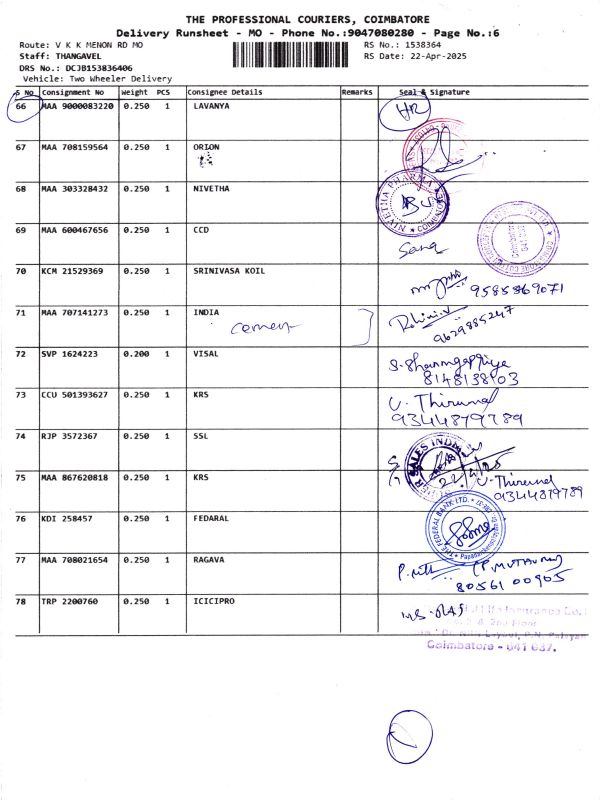 THE PROFESSIONAL COURIERS, COIMBATORE
Delivery Runsheet - MO - Phone No.:9047080280 - Page No.:6
Route: V K K MENON RD MO RS No.: 1538364
Staff: THANGAVEL RS Date: 22-Apr-2025
DRS No.: DCJB153836406
Vehicle: Two Wheeler Delivery
S No Consignment No Weight PCS Consignee Details Remarks Seal & Signature
66 MAA 9000083220 0.250 1 LAVANYA
67 MAA 708159564 0.250 1 ORION
68 MAA 303328432 0.250 1 NIVETHA
NIVETHA PHARMA
69 MAA 600467656 0.250 1 CCD
Coimbatore
70 KCM 21529369 0.250 1 SRINIVASA KOIL
9585869071
71 MAA 707141273 0.250 1 INDIA
cement
Rohini.V
9629885247
72 SVP 1624223 0.200 1 VISAL
8148138103
73 CCU 501393627 0.250 1 KRS
U. Thirumal
9344879789
74 RJP 3572367 0.250 1 SSL
SALES INDIA
22/4/25
75 MAA 867620818 0.250 1 KRS
U. Thirumal
9344879789
76 KDI 258457 0.250 1 FEDARAL
THE FEDERAL BANK LTD.
77 MAA 708021654 0.250 1 RAGAVA
80561 00905
78 TRP 2200760 0.250 1 ICICIPRO
Insurance Co.
2nd Floor
Coimbatore - 641 037.